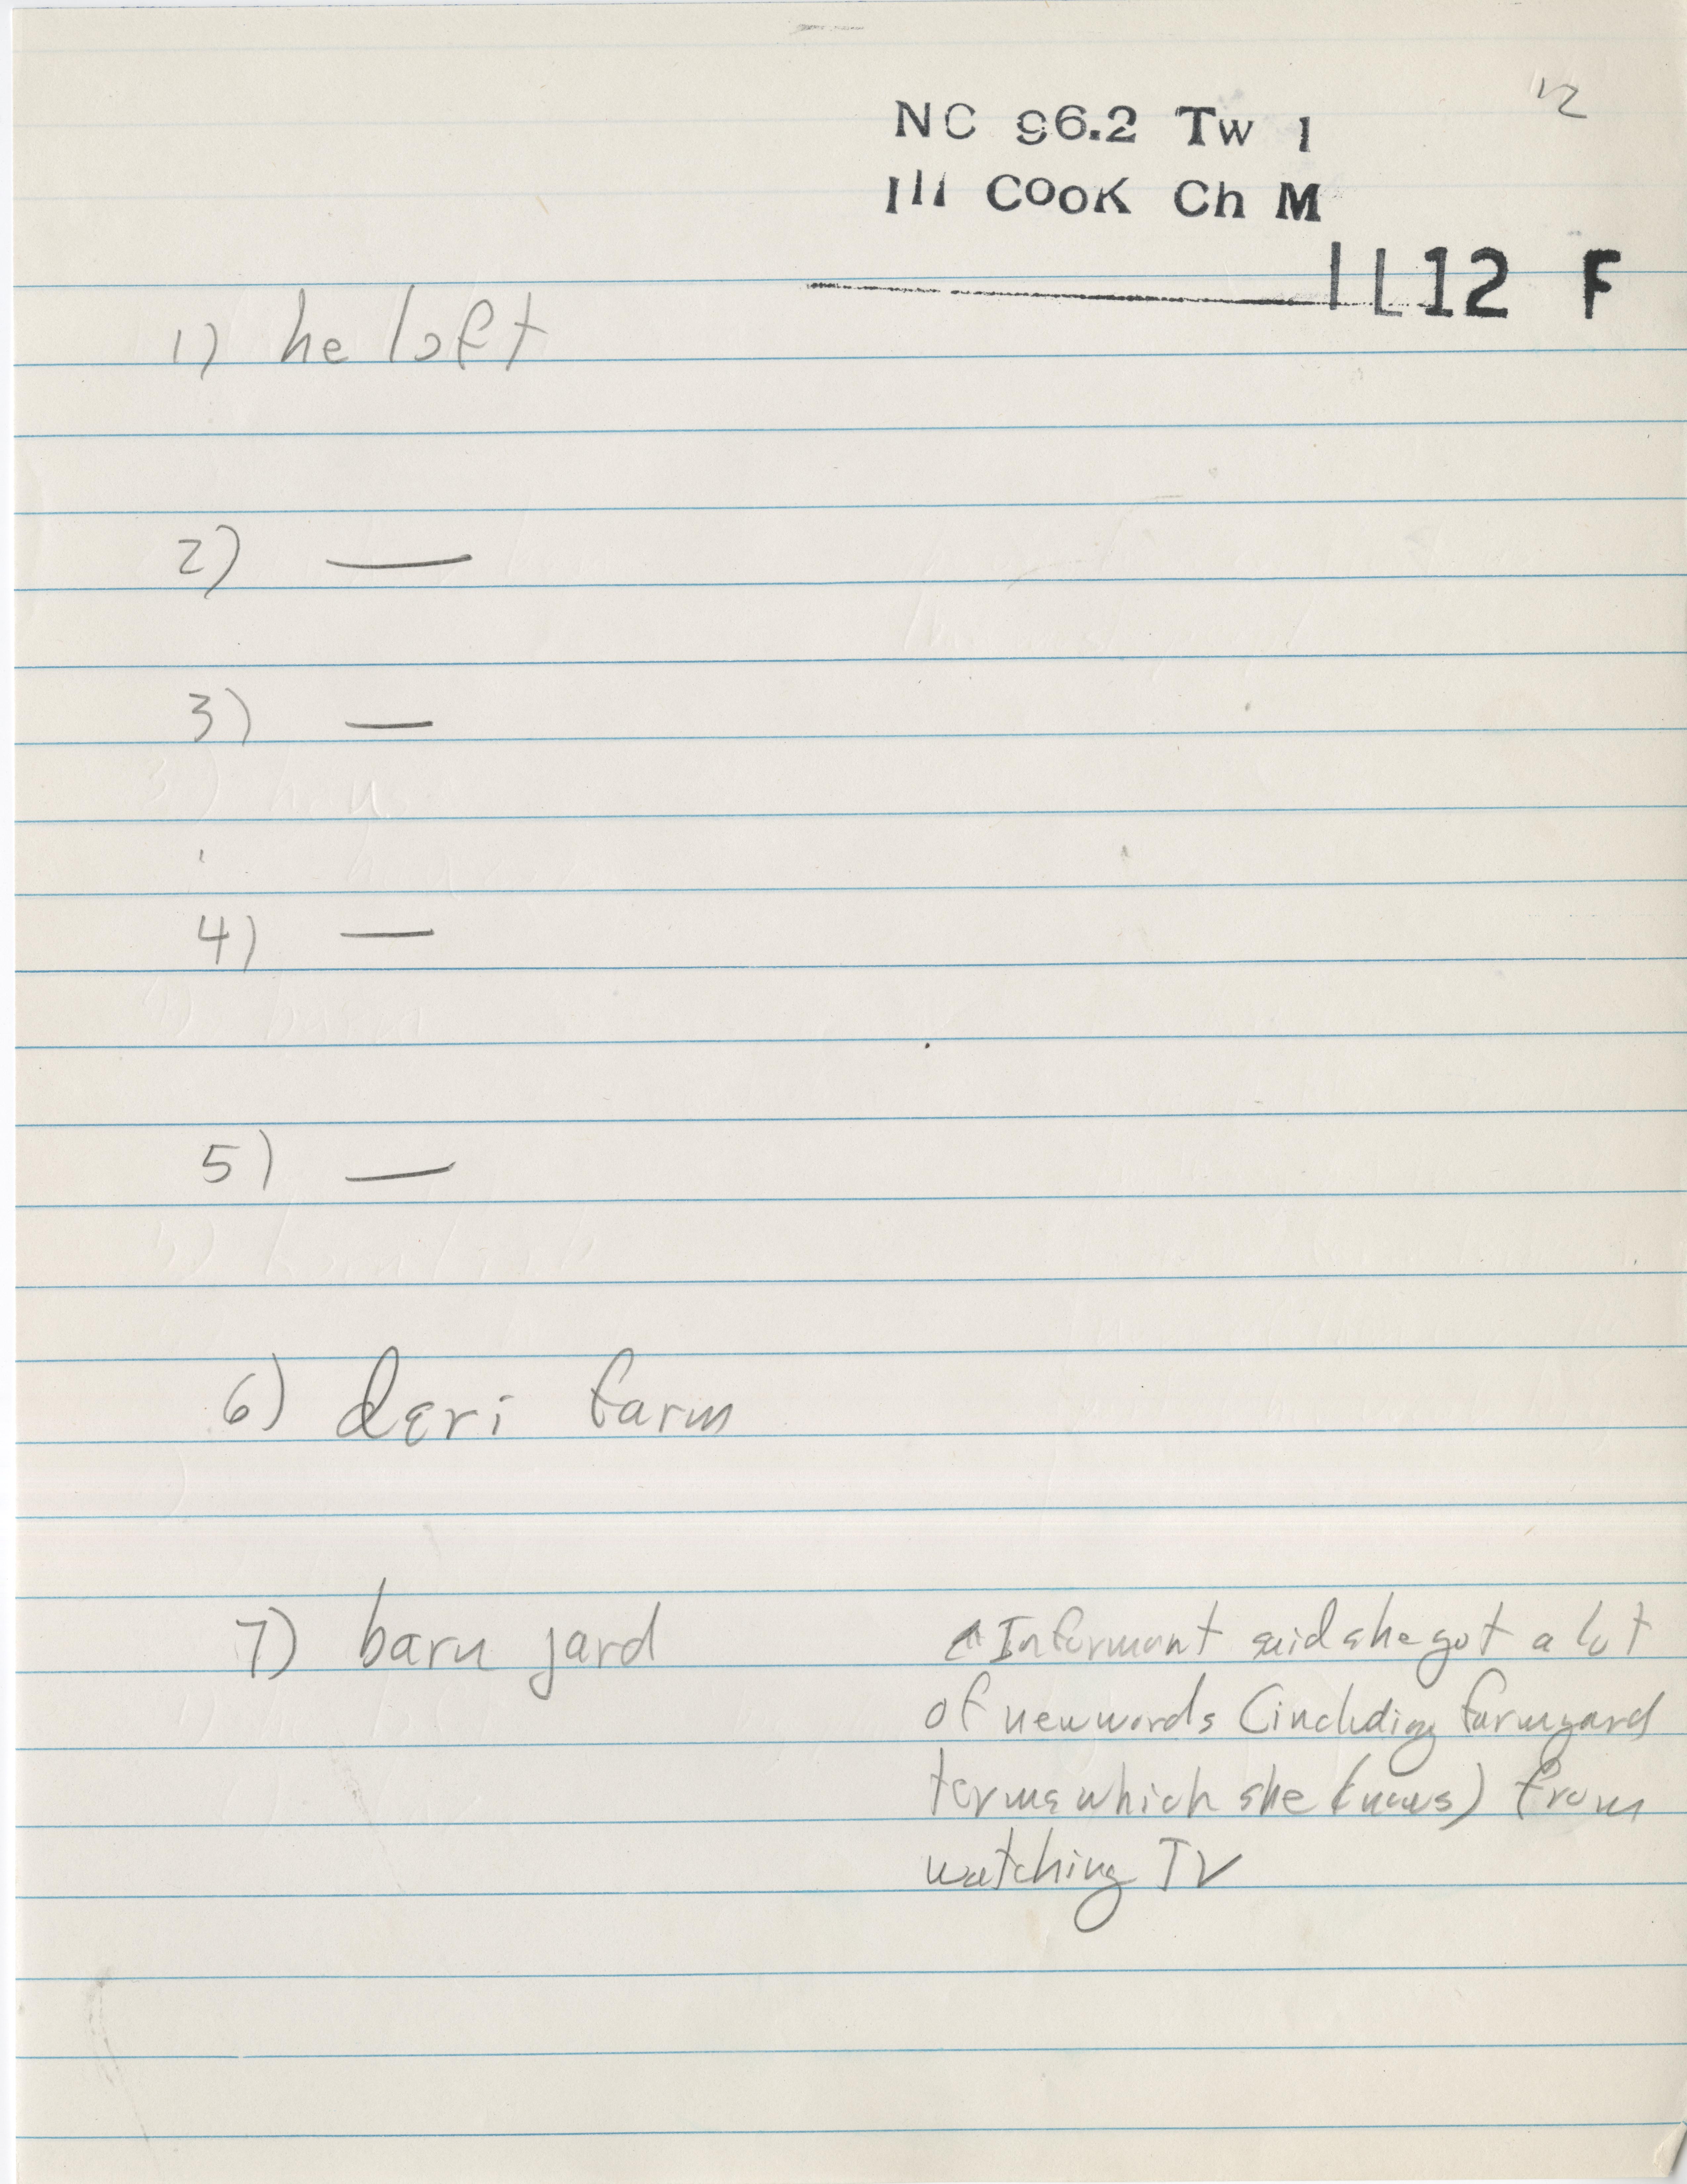 12
NC 96.2 Tw 1
Ill COOK Ch M
IL12 F
1) he lɔft
2) —
3) —
4) —
5) —
6) dɛri farm
7) barn jard
Informant said she got a lot
of new words (including farmyard
terms which she knows) from
watching TV